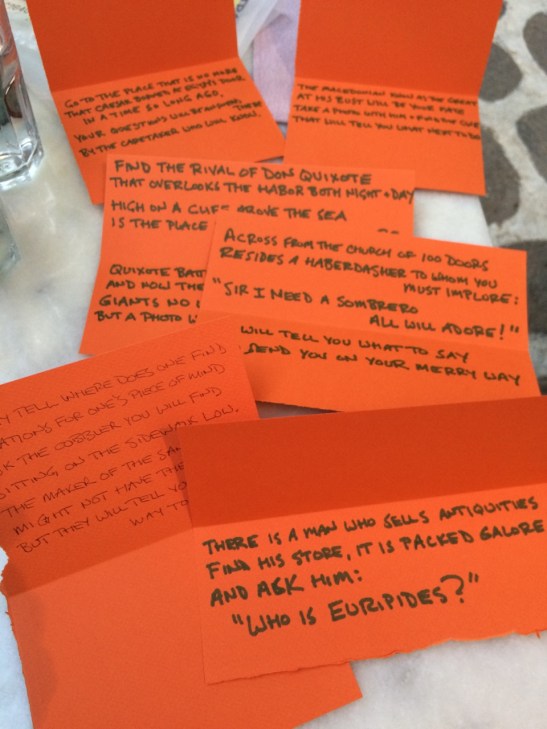 GO TO THE PLACE THAT IS NO MORE
THAT CAESAR BURNED AT EGYPT'S DOOR
IN A TIME SO LONG AGO.
YOUR QUESTIONS WILL BE ANSWERED THERE
BY THE CARETAKER WHO WILL KNOW.
THE MACEDONIAN KNOW AS THE GREAT
AT HIS BUST WILL BE YOUR FATE
TAKE A PHOTO WITH HIM + FIND THE CLUE
THAT WILL TELL YOU WHAT NEXT TO DO
FIND THE RIVAL OF DON QUIXOTE
THAT OVERLOOKS THE HABOR BOTH NIGHT + DAY
HIGH ON A CLIFF ABOVE THE SEA
IS THE PLACE
QUIXOTE
AND NOW THE
GIANTS NO
BUT A PHOTO
ACROSS FROM THE CHURCH OF 100 DOORS
RESIDES A HABERDASHER TO WHOM YOU
MUST IMPLORE:
"SIR I NEED A SOMBRERO
ALL WILL ADORE!"
WILL TELL YOU WHAT TO SAY
SEND YOU ON YOUR MERRY WAY
TELL WHERE DOES ONE FIND
FOR ONE'S PIECE OF MIND
THE COBBLER YOU WILL FIND
SITTING, ON THE SIDEWALK LOW.
THE MAKER OF THE
MIGHT NOT HAVE THE
BUT THEY WILL TELL YOU
WAY TO
THERE IS A MAN WHO SELLS ANTIQUITIES
FIND HIS STORE, IT IS PACKED GALORE
AND ASK HIM:
"WHO IS EURIPIDES?"